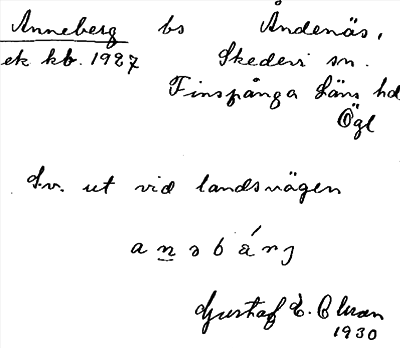 Anneberg bs Åndenäs,
ek kb. 1927 Skedevi sn.
Finspånga Läns hd
Ögl
S.v. ut vid landsvägen
Gustaf E.
1930